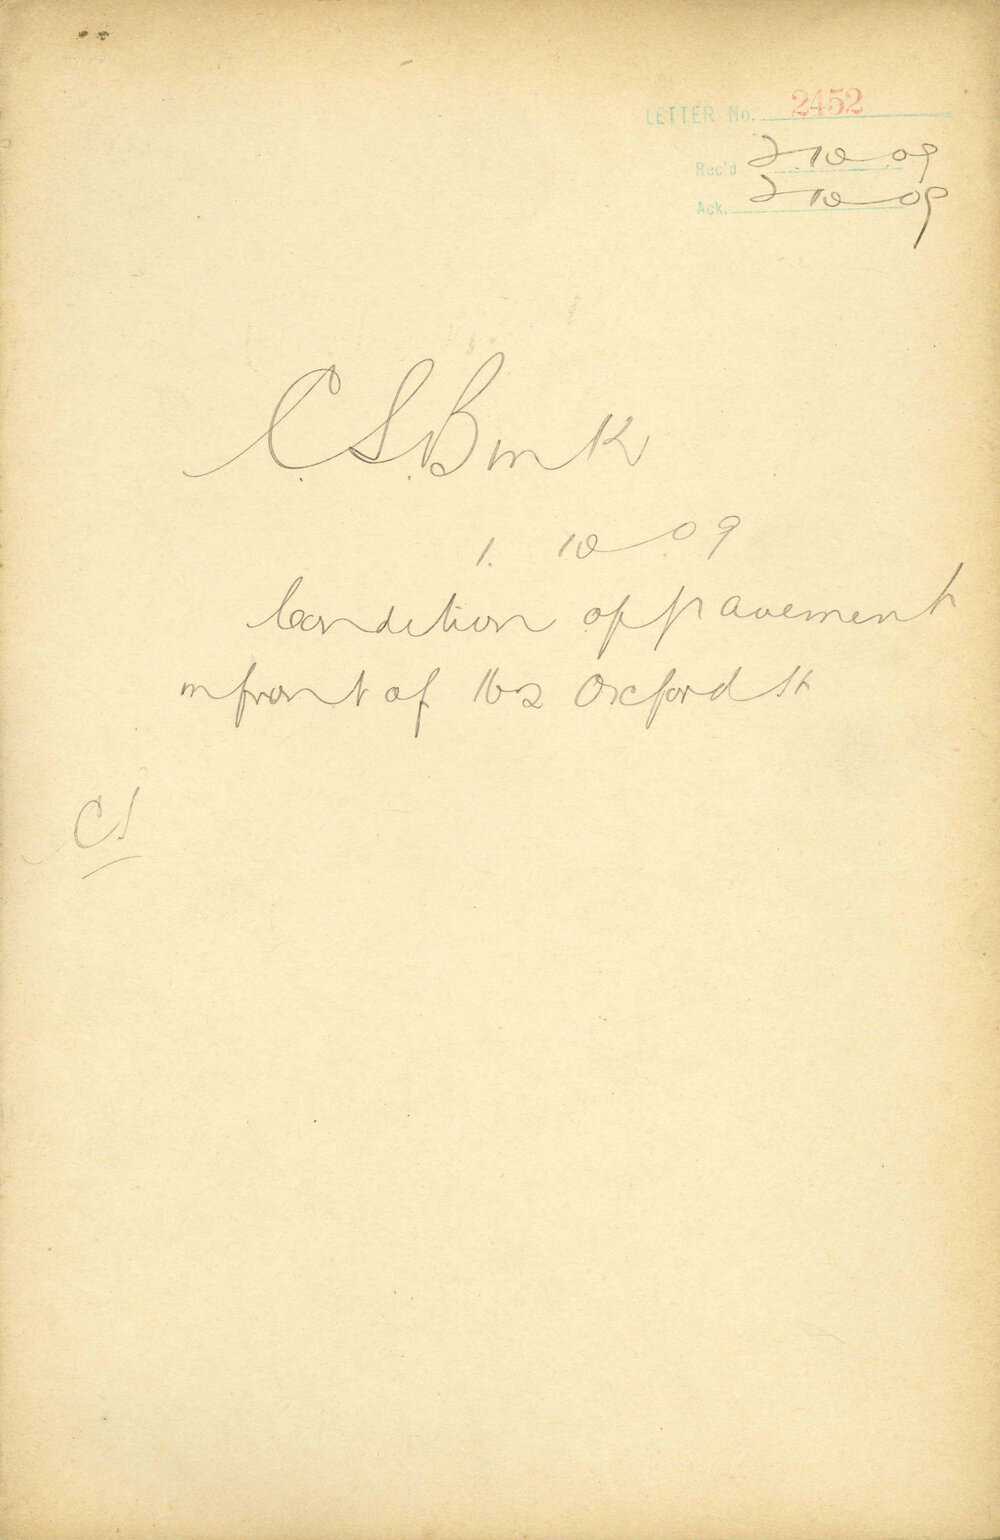 LETTER No. 2452
Rec'd 2-10-09
Ack. 2-10-09
C.S. Bank
1. 10-09
Condition of pavement
in front of 162 Oxford St
CS